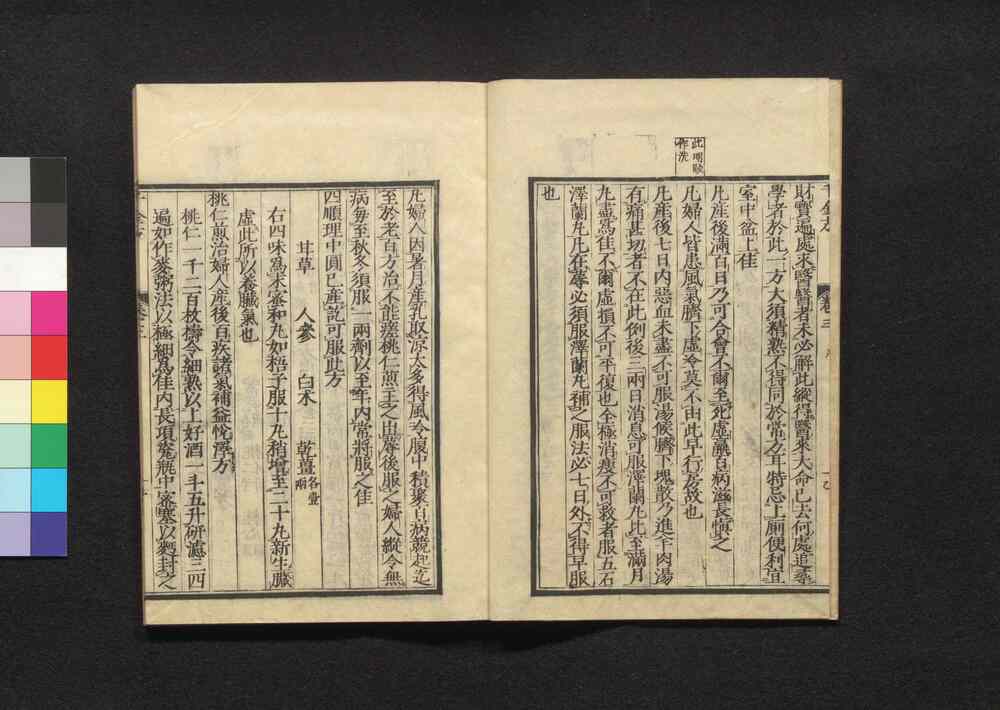 財貨遍處求醫醫者未必解此縱得醫來大命已去何處追尋
學者於此一方大須精熟不得同於常方耳特忌上廁便利宜
室中盆上佳
凡產後滿百日乃可合會不爾至死虛羸百病滋長慎之
凡婦人皆患風氣臍下虛冷莫不由此早行房故也
凡產後七日內惡血未盡不可服湯候臍下塊散乃進羊肉湯
有痛甚切者不在此例後三兩日消息可服澤蘭丸比至滿月
丸盡爲佳不爾虛損不可平復也全極消瘦不可救者服五石
澤蘭丸凡在蓐必須服澤蘭丸補之服法必七日外不得早服
也
凡婦人因暑月產乳取涼太多得風冷腹中積聚百病競起迄
至於老百方治不能瘥桃仁煎主之出蓐後服之婦人縱令無
病每至秋冬須服一兩劑以至年內常將服之佳
四順理中圓已產訖可服此方
甘草 人參 白朮 乾薑各壹兩
右四味爲末蜜和丸如梧子服十丸稍增至二十丸新生臟
虛此所以養臟氣也
桃仁煎治婦人產後百疾諸氣補益悅澤方
桃仁一千二百枚擣令細熟以上好酒一斗五升研濾三四
遍如作麥粥法以極細爲佳內長項瓷瓶中密塞以麪封之